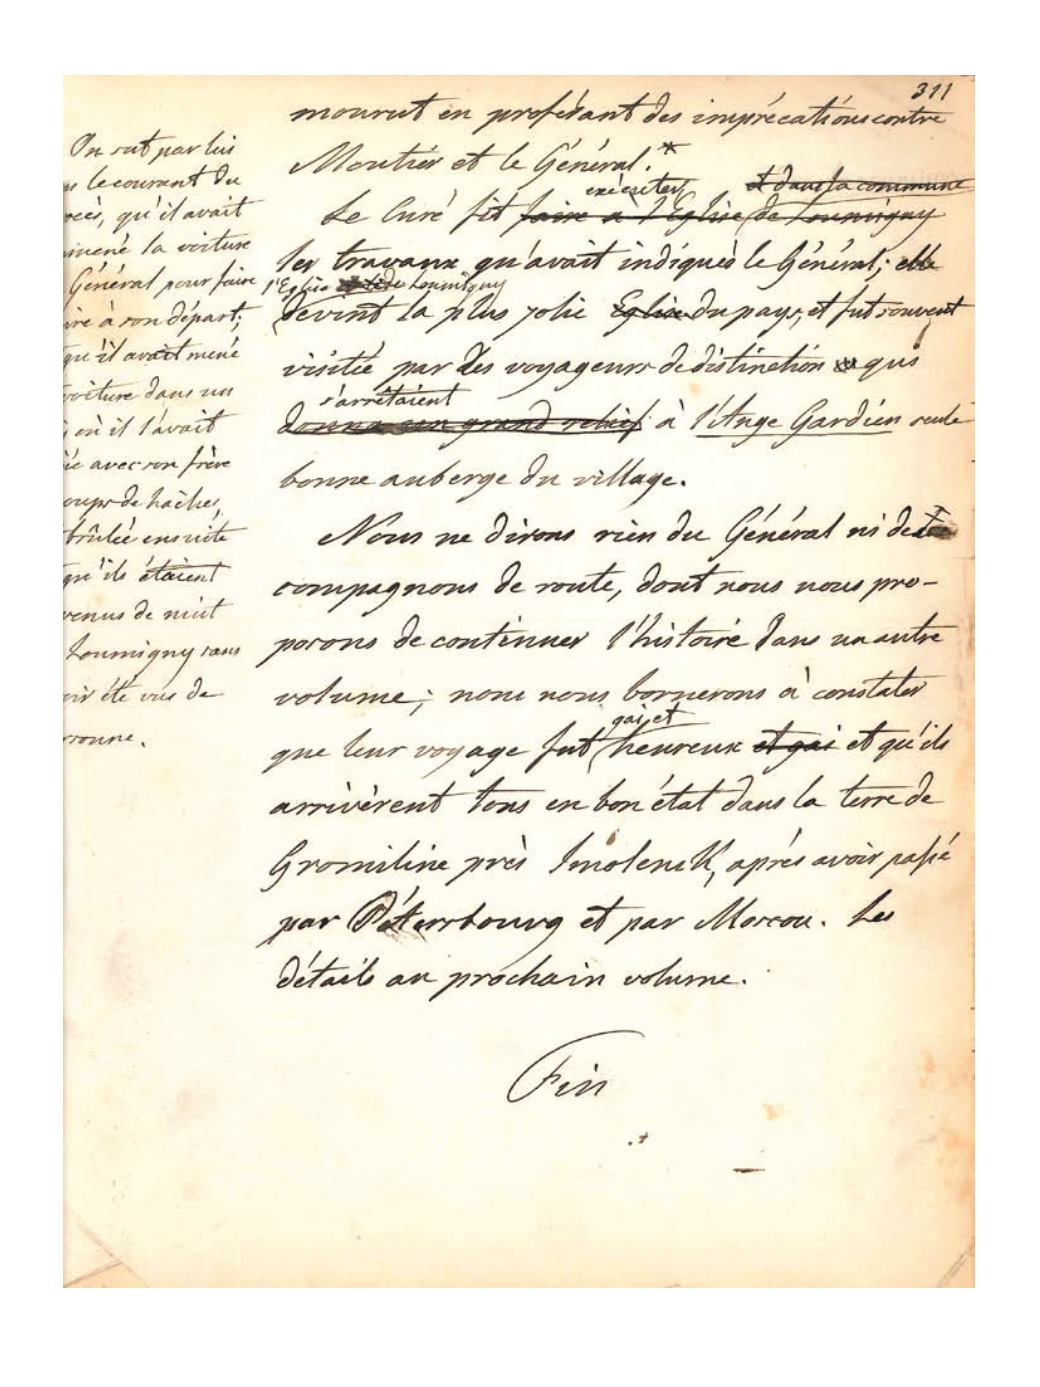 311
mourut en proférant des imprécations contre
Moutier et le Général.*
exécuter et dans la commune
Le Curé fit faire à l'Eglise de Loumigny
les travaux qu'avait indiqués le Général; elle
l'Eglise de Loumigny
devint la plus jolie Eglise du pays, et fut souvent
visitée par des voyageurs de distinction qui
s'arrêtaient
donna un grand relief à l'Ange Gardien seule
bonne auberge du village.
Nous ne dirons rien du Général ni de
compagnons de route, dont nous nous pro-
posons de continuer l'histoire dans un autre
volume; nous nous bornerons à constater
gai et
que leur voyage fut heureux et gai et qu'ils
arrivèrent tous en bon état dans la terre de
Gromiline près Smolensk, après avoir passé
par Pétersbourg et par Moscou. Les
détails au prochain volume.
Fin
On sut par lui
le courant du
cès, qu'il avait
mené la voiture
Général pour faire
ire à son départ;
qu'il avait mené
voiture dans un
où il l'avait
ée avec son frère
oups de haches,
brûlée ensuite
qu'ils étaient
venus de nuit
Loumigny sans
oir été vus de
rsonne.